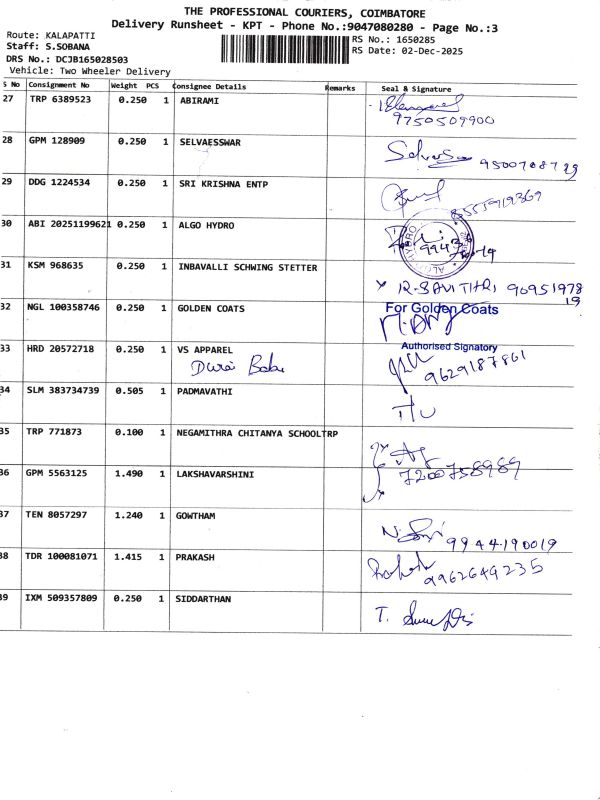 THE PROFESSIONAL COURIERS, COIMBATORE
Delivery Runsheet - KPT - Phone No.:9047080280 - Page No.:3
Route: KALAPATTI
Staff: S.SOBANA
DRS No.: DCJB165028503
Vehicle: Two Wheeler Delivery
RS No.: 1650285
RS Date: 02-Dec-2025
S No Consignment No Weight PCS Consignee Details Remarks Seal & Signature
27 TRP 6389523 0.250 1 ABIRAMI
9750509900
28 GPM 128909 0.250 1 SELVAESSWAR
29 DDG 1224534 0.250 1 SRI KRISHNA ENTP
30 ABI 20251199621 0.250 1 ALGO HYDRO
31 KSM 968635 0.250 1 INBAVALLI SCHWING STETTER
R. SAVITHRI 9095197819
32 NGL 100358746 0.250 1 GOLDEN COATS
For Golden Coats
Authorised Signatory
33 HRD 20572718 0.250 1 VS APPAREL
Durai Babu
9629187861
34 SLM 383734739 0.505 1 PADMAVATHI
35 TRP 771873 0.100 1 NEGAMITHRA CHITANYA SCHOOLTRP
7200758989
36 GPM 5563125 1.490 1 LAKSHAVARSHINI
37 TEN 8057297 1.240 1 GOWTHAM
9944190019
38 TDR 100081071 1.415 1 PRAKASH
9962649235
39 IXM 509357809 0.250 1 SIDDARTHAN